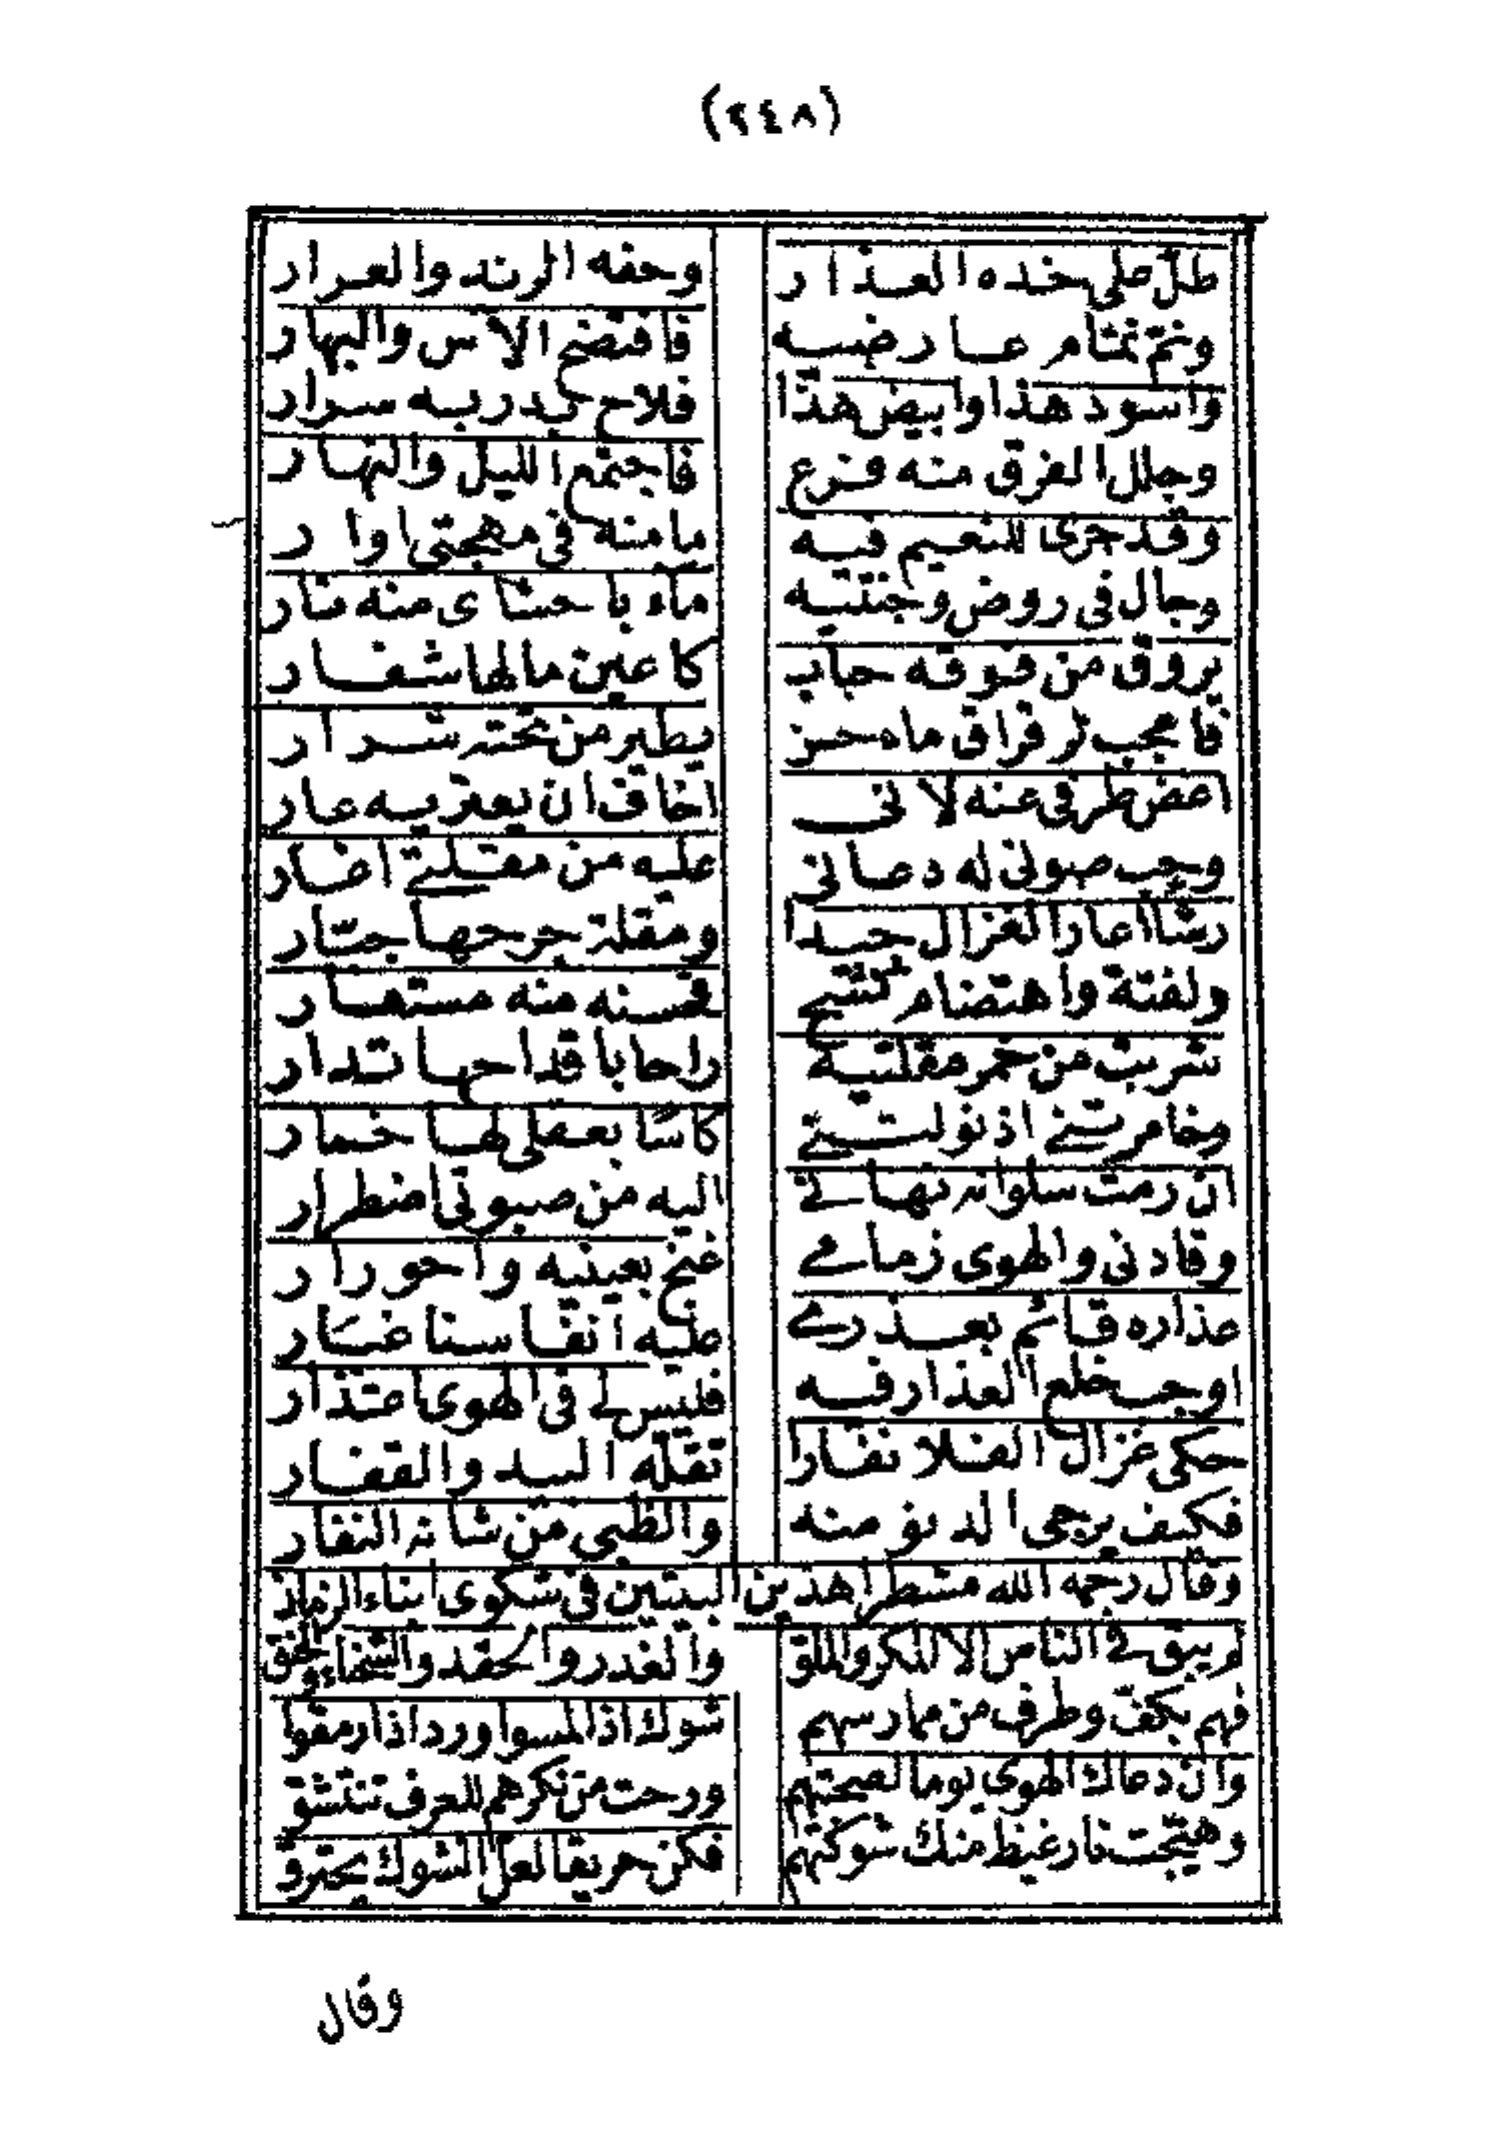 (٢٤٨)
طل على خده العذار وحفه الرند والعرار
ونم نمّام عارضيه فافتضح الآس والبهار
واسود هذا وابيض هذا فلاح في بدر به سرار
وجلل الفرق منه فرع فاجتمع الليل والنهار
وقد جرى للنعيم فيه ما منه في مهجتي اوار
وجال في روض وجنتيه ماء باحشاى منه نار
يروق من فوقه حباب كاعين ما لها شفار
فاعجب لرقراق ماء حسن يطير من تحته شرار
اغض طرفي عنه لاني اخاف ان يعتريه عار
وجب صوني له دعاني عليه من مقلتي اغار
رشأ اعار الغزال جيدا ومقلة جرحها جبار
ولفتة واهتضام كشح قسنه منه مستعار
شربت من خمر مقلتيه راحا باقداحها تدار
وخامرتني اذ نولتني كاسًا بعقلي لها خمار
ان رمت سلوانه نهاني اليه من صبوتي اضطرار
وقادني والهوى زمامي غنج بعينيه واحورار
عذاره قائم بعذري عليه انفاسنا غبار
اوجب خلع العذار فيه فليس لي في الهوى اعتذار
حكى غزال الفلا نفارا تقله البيد والقفار
فكيف يرجى الدنو منه والظبي من شانه النفار
وقال رحمه الله مشطرا هذين البيتين في شكوى ابناء الزمان
لم يبق في الناس الا المكر والملق والغدر والحقد والشحناء والحنق
فهم بكف وطرف من ممارسهم شوك اذا لمسوا ورد اذا رمقوا
وان دعاك الهوى يوما لصحبتهم ورحت من نكرهم للعرف تنتشق
وهيّجت نار غيظ منك شوكتهم فكن حريقا لعل الشوك يحترق
وقال